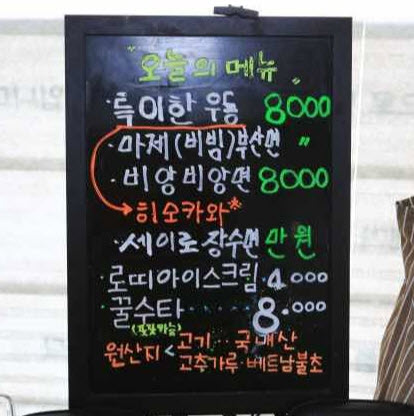 "오늘의 메뉴"
·특이한 우동 8000
·마제(비빔)부산면 "
·비앙비앙면 8000
→히소카와*
·세이로장수면 만원
·로띠아이스크림 4.000
·꿀수타 8.000
(포장가능)
원산지 < 고기..국내산
고추가루·베트남불초